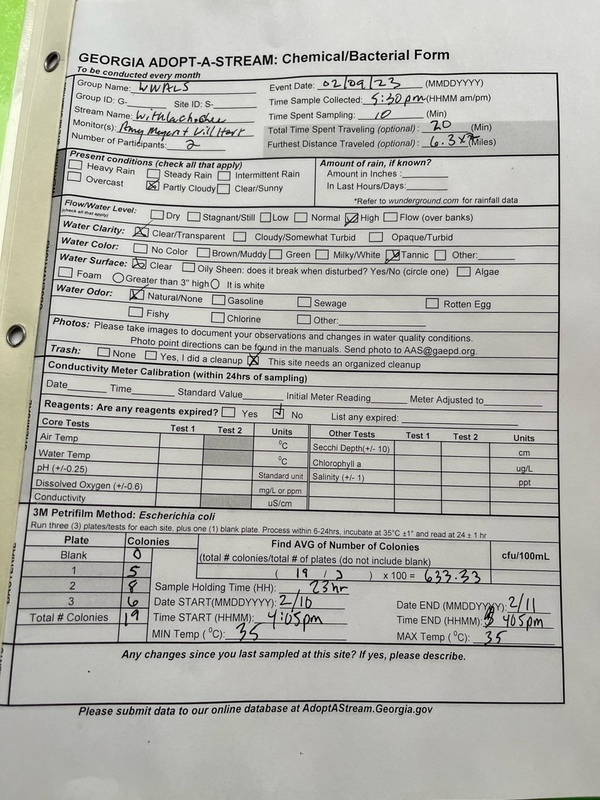 GEORGIA ADOPT-A-STREAM: Chemical/Bacterial Form
To be conducted every month
Group Name: WWALS Event Date: 02/09/23 (MMDDYYYY)
Group ID: G- Site ID: S- Time Sample Collected: 5:30pm (HHMM am/pm)
Stream Name: Withlacoochee Time Spent Sampling: 10 (Min)
Monitor(s): Total Time Spent Traveling (optional): 20 (Min)
Number of Participants: 2 Furthest Distance Traveled (optional): 6.3 (Miles)
Present conditions (check all that apply) Amount of rain, if known?
Heavy Rain Steady Rain Intermittent Rain Amount in Inches:
Overcast Partly Cloudy Clear/Sunny In Last Hours/Days:
*Refer to wunderground.com for rainfall data
Flow/Water Level: Dry Stagnant/Still Low Normal High Flow (over banks)
(check all that apply)
Water Clarity: Clear/Transparent Cloudy/Somewhat Turbid Opaque/Turbid
Water Color: No Color Brown/Muddy Green Milky/White Tannic Other:
Water Surface: Clear Oily Sheen: does it break when disturbed? Yes/No (circle one) Algae
Foam Greater than 3" high It is white
Water Odor: Natural/None Gasoline Sewage Rotten Egg
Fishy Chlorine Other:
Photos: Please take images to document your observations and changes in water quality conditions.
Photo point directions can be found in the manuals. Send photo to AAS@gaepd.org.
Trash: None Yes, I did a cleanup This site needs an organized cleanup
Conductivity Meter Calibration (within 24hrs of sampling)
Date Time Standard Value Initial Meter Reading Meter Adjusted to
Reagents: Are any reagents expired? Yes No List any expired:
Core Tests Test 1 Test 2 Units Other Tests Test 1 Test 2 Units
Air Temp °C Secchi Depth(+/- 10) cm
Water Temp °C Chlorophyll a ug/L
pH (+/-0.25) Standard unit Salinity (+/- 1) ppt
Dissolved Oxygen (+/-0.6) mg/L or ppm
Conductivity uS/cm
3M Petrifilm Method: Escherichia coli
Run three (3) plates/tests for each site, plus one (1) blank plate. Process within 6-24hrs, incubate at 35°C ±1° and read at 24 ± 1 hr
Plate Colonies Find AVG of Number of Colonies
Blank 0 (total # colonies/total # of plates (do not include blank) cfu/100mL
1 5 ( 19 / 3 ) x 100 = 633.33
2 8 Sample Holding Time (HH): 23hr
3 6 Date START(MMDDYYYY): 2/10 Date END (MMDDYYYY): 2/11
Total # Colonies 19 Time START (HHMM): 4:05pm Time END (HHMM): 405pm
MIN Temp (°C): 35 MAX Temp (°C): 35
Any changes since you last sampled at this site? If yes, please describe.
Please submit data to our online database at AdoptAStream.Georgia.gov